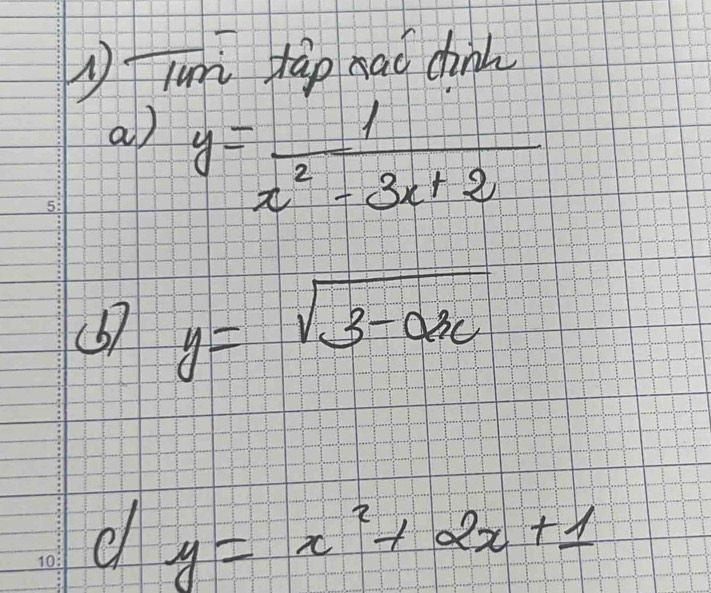 1) Tìm tập xác định
a) y = 1 / (x² - 3x + 2)
b) y = √(3 - 2x)
c) y = x² + 2x + 1